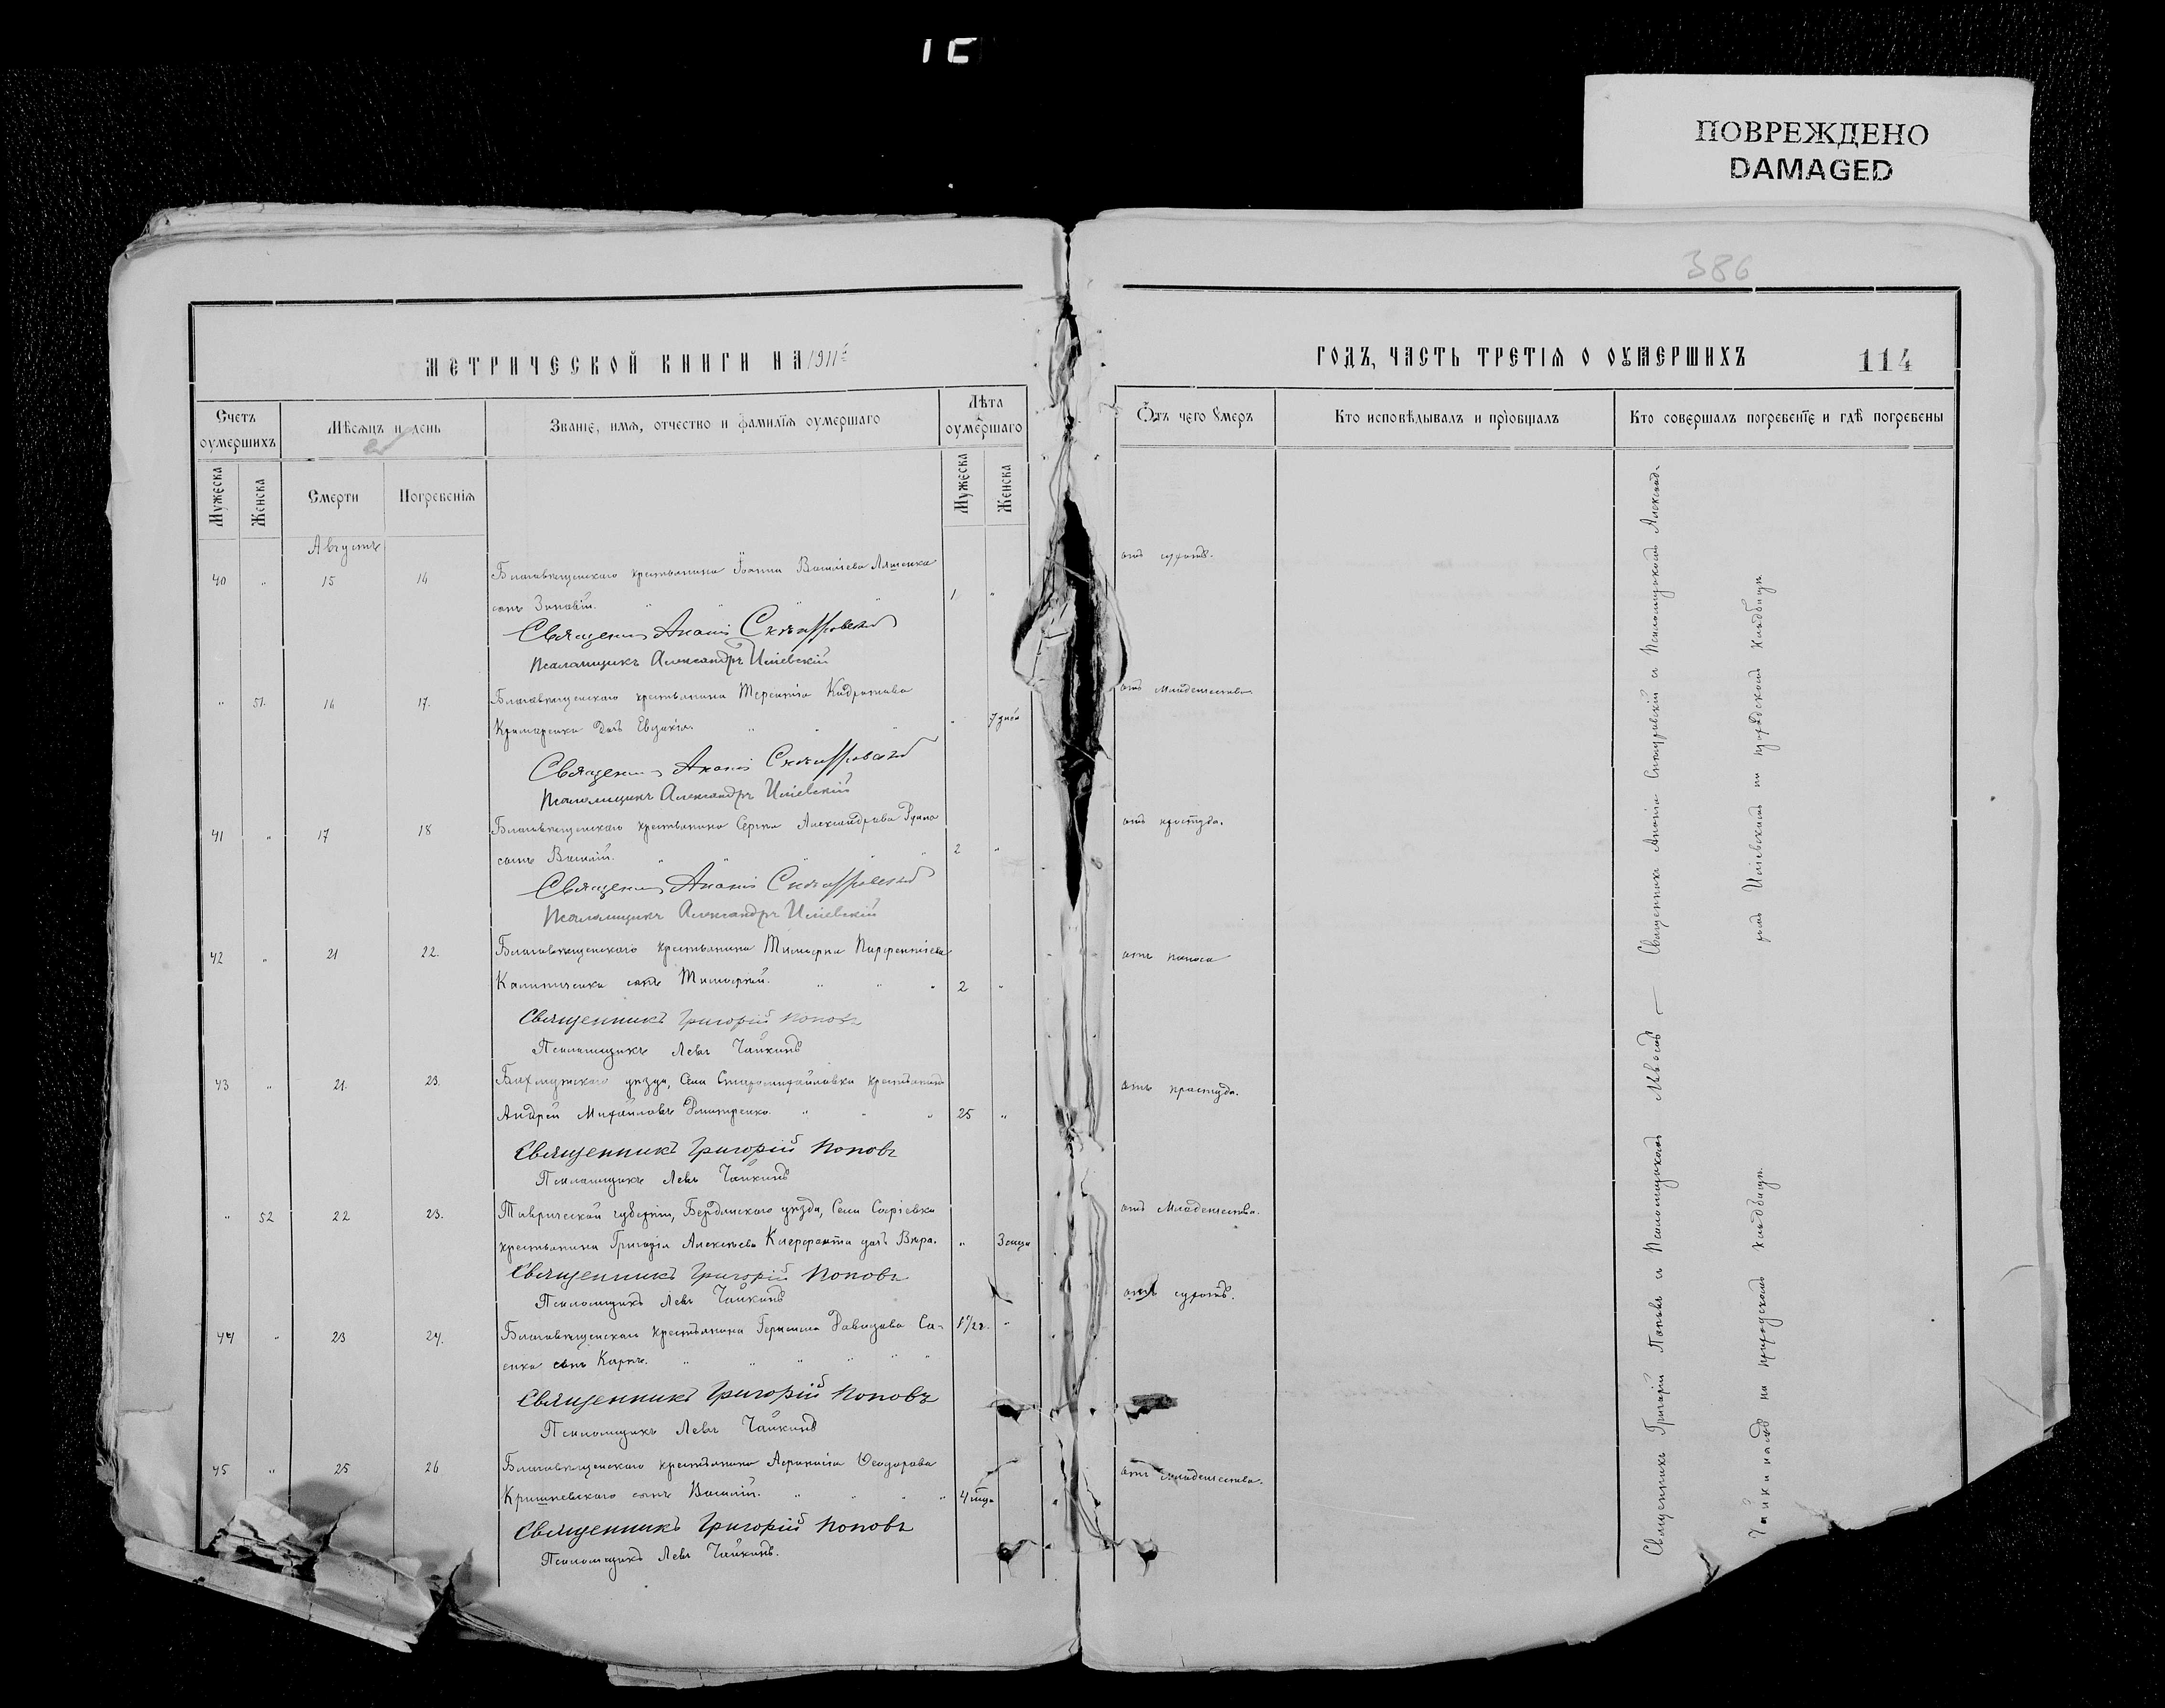 ПОВРЕЖДЕНО
DAMAGED
386
МЕТРИЧЕСКОЙ КНИГИ НА 1911й
ГОДЪ, ЧАСТЬ ТРЕТІѦ О ОУМЕРШИХЪ
114
Счетъ оумершихъ
Мѣсяцъ и день
Званіе, имя, отчество и фамилія оумершаго
Лѣта оумершаго
Мужеска
Женска
Смерти
Погребенія
Мужеска
Женска
Ѿтъ чего умеръ
Кто исповѣдывалъ и пріобщалъ
Кто совершалъ погребеніе и гдѣ погребены
Августъ
40 " 15 16 Благовѣщенскаго крестьянина Іоанна Василіева Ляшенка
сынъ Зиновій. " " " " 1 "
Священникъ Ананій
Псаломщикъ Александръ Иліевскій
" 51. 16 17. Благовѣщенскаго крестьянина Терентія Кодратова
Крамаренка дочь Евдокія. " " " " 7 дней отъ младенчества
Священникъ Ананій
Псаломщикъ Александръ Иліевскій
41 " 17 18 Благовѣщенскаго крестьянина Сергѣя Александрова
сынъ Василій. " " " " 2 " отъ простуды.
Священникъ Ананій
Псаломщикъ Александръ Иліевскій
42 " 21 22. Благовѣщенскаго крестьянина Тимофея Парфентіева отъ поноса
Калиниченка сынъ Тимофей. " " " 2 "
Священникъ Григорій Поповъ
Псаломщикъ Левъ Чайкинъ
43 " 21. 23. Бахмутскаго уѣзда, Села Старомихайловки крестьянинъ отъ простуды.
Андрей Михайловъ Дмитренко. " " " 25 "
Священникъ Григорій Поповъ
Псаломщикъ Левъ Чайкинъ
" 52 22 23. Таврической губерніи, Бердянскаго уѣзда, Села Софіевки отъ младенчества.
крестьянина Григорія Алексѣева дочь Вѣра. "
Священникъ Григорій Поповъ
Псаломщикъ Левъ Чайкинъ
44 " 23 24. Благовѣщенскаго крестьянина Герасима Давидова Са- "
енка сынъ Карпъ. " " " " " "
Священникъ Григорій Поповъ
Псаломщикъ Левъ Чайкинъ
45 " 25 26 Благовѣщенскаго крестьянина Афанасія Ѳеодорова отъ младенчества.
Кришневскаго сынъ Василій. " " " " 4 мца
Священникъ Григорій Поповъ
Псаломщикъ Левъ Чайкинъ.
Священникъ Григорій Поповъ и Псаломщикомъ Львомъ — Священникъ Ананій и Псаломщикомъ Александ-
Чайкинымъ на приходскомъ кладбищѣ. ромъ Иліевскимъ на приходскомъ кладбищѣ.